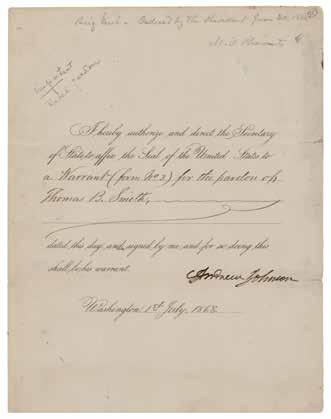 Ordered by the President June 30, 1868
Important
Rebel pardon
I hereby authorize and direct the Secretary
of State to affix the Seal of the United States to
a Warrant (form No 3) for the pardon of
Thomas B. Smith,
dated this day, and signed by me and for so doing this
shall be his warrant.
Andrew Johnson
Washington 1st July, 1868